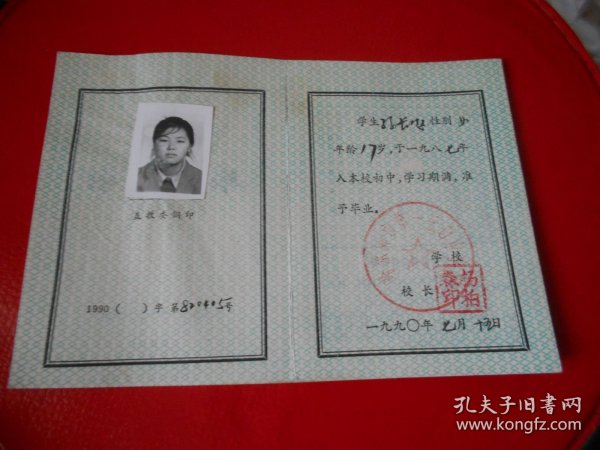 县教委钢印
1990 ( ) 字 第820405号
学生 性别 女
年龄17岁，于一九八七年
入本校初中，学习期满，准
予毕业。
学校
校长
杨柏森印
一九九〇年 七月 十五日
孔夫子旧书网
www.kongfz.com